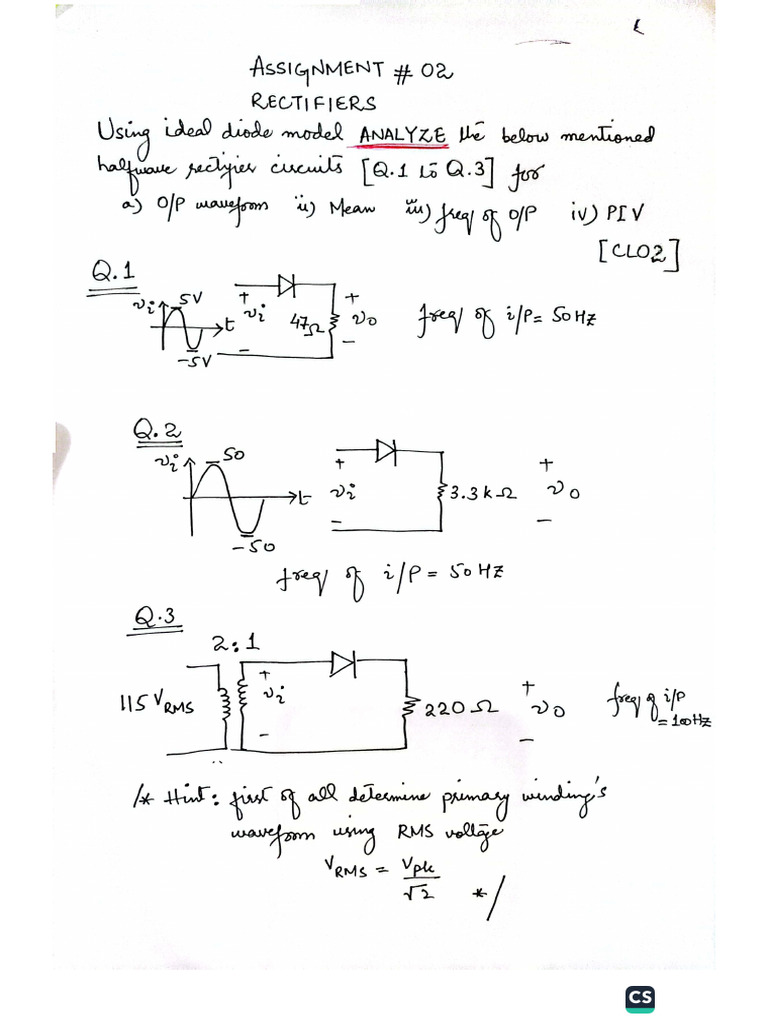 ASSIGNMENT # 02
RECTIFIERS
Using ideal diode model ANALYZE the below mentioned
halfwave rectifier circuits [Q.1 to Q.3] for
a) O/P waveform ii) Mean iii) freq of O/P iv) PIV
[CLO2]
Q.1
vi 5V t -5V
+ vi - 47Ω + vo -
freq of i/P = 50 Hz
Q.2
vi 50 t -50
+ vi - 3.3 k Ω + vo -
freq of i/P = 50 Hz
Q.3
2:1
115 VRMS + vi - 220 Ω + vo -
freq of i/P
= 100Hz
/* Hint: first of all determine primary winding's
waveform using RMS voltage
VRMS = Vpk
√2 */
CS